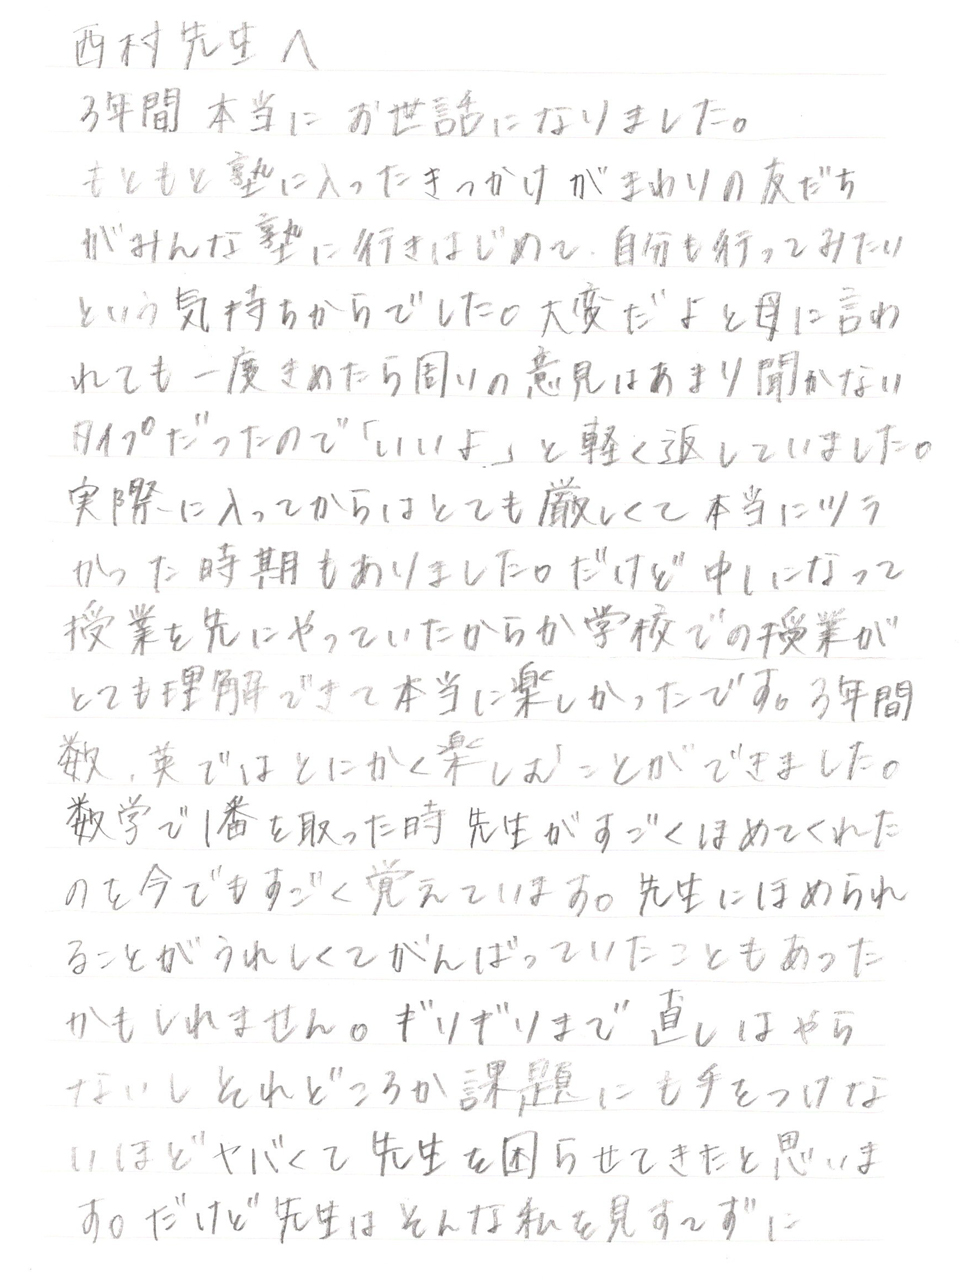 西村先生へ
3年間 本当に お世話になりました。
もともと塾に入ったきっかけがまわりの友だち
がみんな塾に行きはじめて、自分も行ってみたい
という気持ちからでした。大変だよと母に言わ
れても一度きめたら周りの意見はあまり聞かない
タイプだったので「いいよ」と軽く返していました。
実際に入ってからはとても厳しくて本当にツラ
かった時期もありました。だけど中1になって
授業を先にやっていたからか学校での授業が
とても理解できて本当に楽しかったです。3年間
数、英ではとにかく楽しむことができました。
数学で1番を取った時 先生がすごくほめてくれた
のを今でもすごく覚えています。先生にほめられ
ることがうれしくてがんばっていたこともあった
かもしれません。ギリギリまで直しはやら
ないし それどころか課題にも手をつけな
いほどヤバくて先生を困らせてきたと思いま
す。だけど先生はそんな私を見すてずに